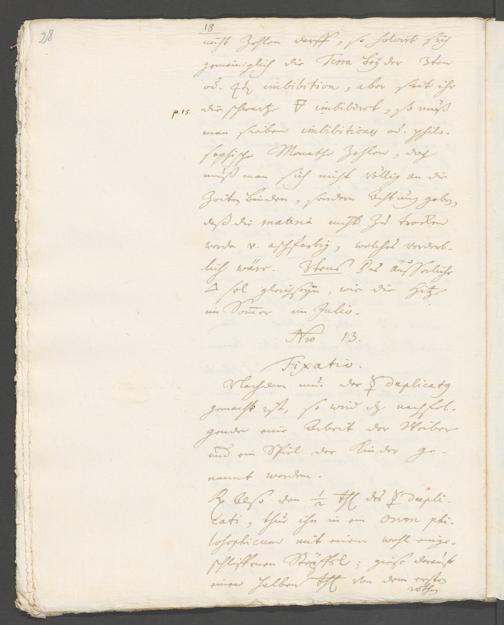 28
18
nicht Zehlen darff, so solvirt sich
gemeiniglich die Terra bey der 3ten
od. 4ten imbibition, aber seit ihr
p. 15. die schwartze 🜃 imbibiret, so muß
man sieben imbibitiones od. philo-
sophische Monathe Zehlen, doch
muß man sich nicht völlig an die
Zeiten binden, sondern Achtung geben,
daß die materia nicht zu trocken
werde v. aschfarbig, welches verderb-
lich wäre. Das äusserliche
🜂 sol gleich seyn, wie die Hitz
im Sommer im Julio.
Nro 13.
Fixatio.
Nachdem nun der ☿ duplicatg
gemacht ist, so wird die nachfol-
gende eine Arbeit der Weiber
und ein Spiel der Kinder ge-
nannt werden.
℞ Also den 1/2 des ☿ dupli-
cati, thue ihn in ein ovum phi-
losophicum mit einem wohl einge-
schliffenen Stöpffel; giesse darauf
einen halben von dem ersten